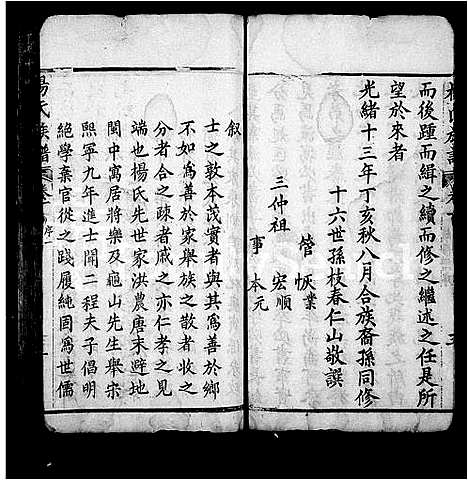 而後踵而緝之續而修之繼述之任是所
望於來者
光緒十三年丁亥秋八月合族裔孫同修
十六世孫枝春仁山敬譔
管 恢業
三仲祖 宏順
事 本元
敘
士之敦本茂實者與其為善於鄉
不如為善於家舉族之散者收之
分者合之疎者戚之亦仁孝之見
端也楊氏先世家洪農唐末避地
閩中寓居將樂及龜山先生舉宋
熙寧九年進士聞二程夫子倡明
絕學棄官從之踐履純固為世儒
楊氏族譜 卷一 序一